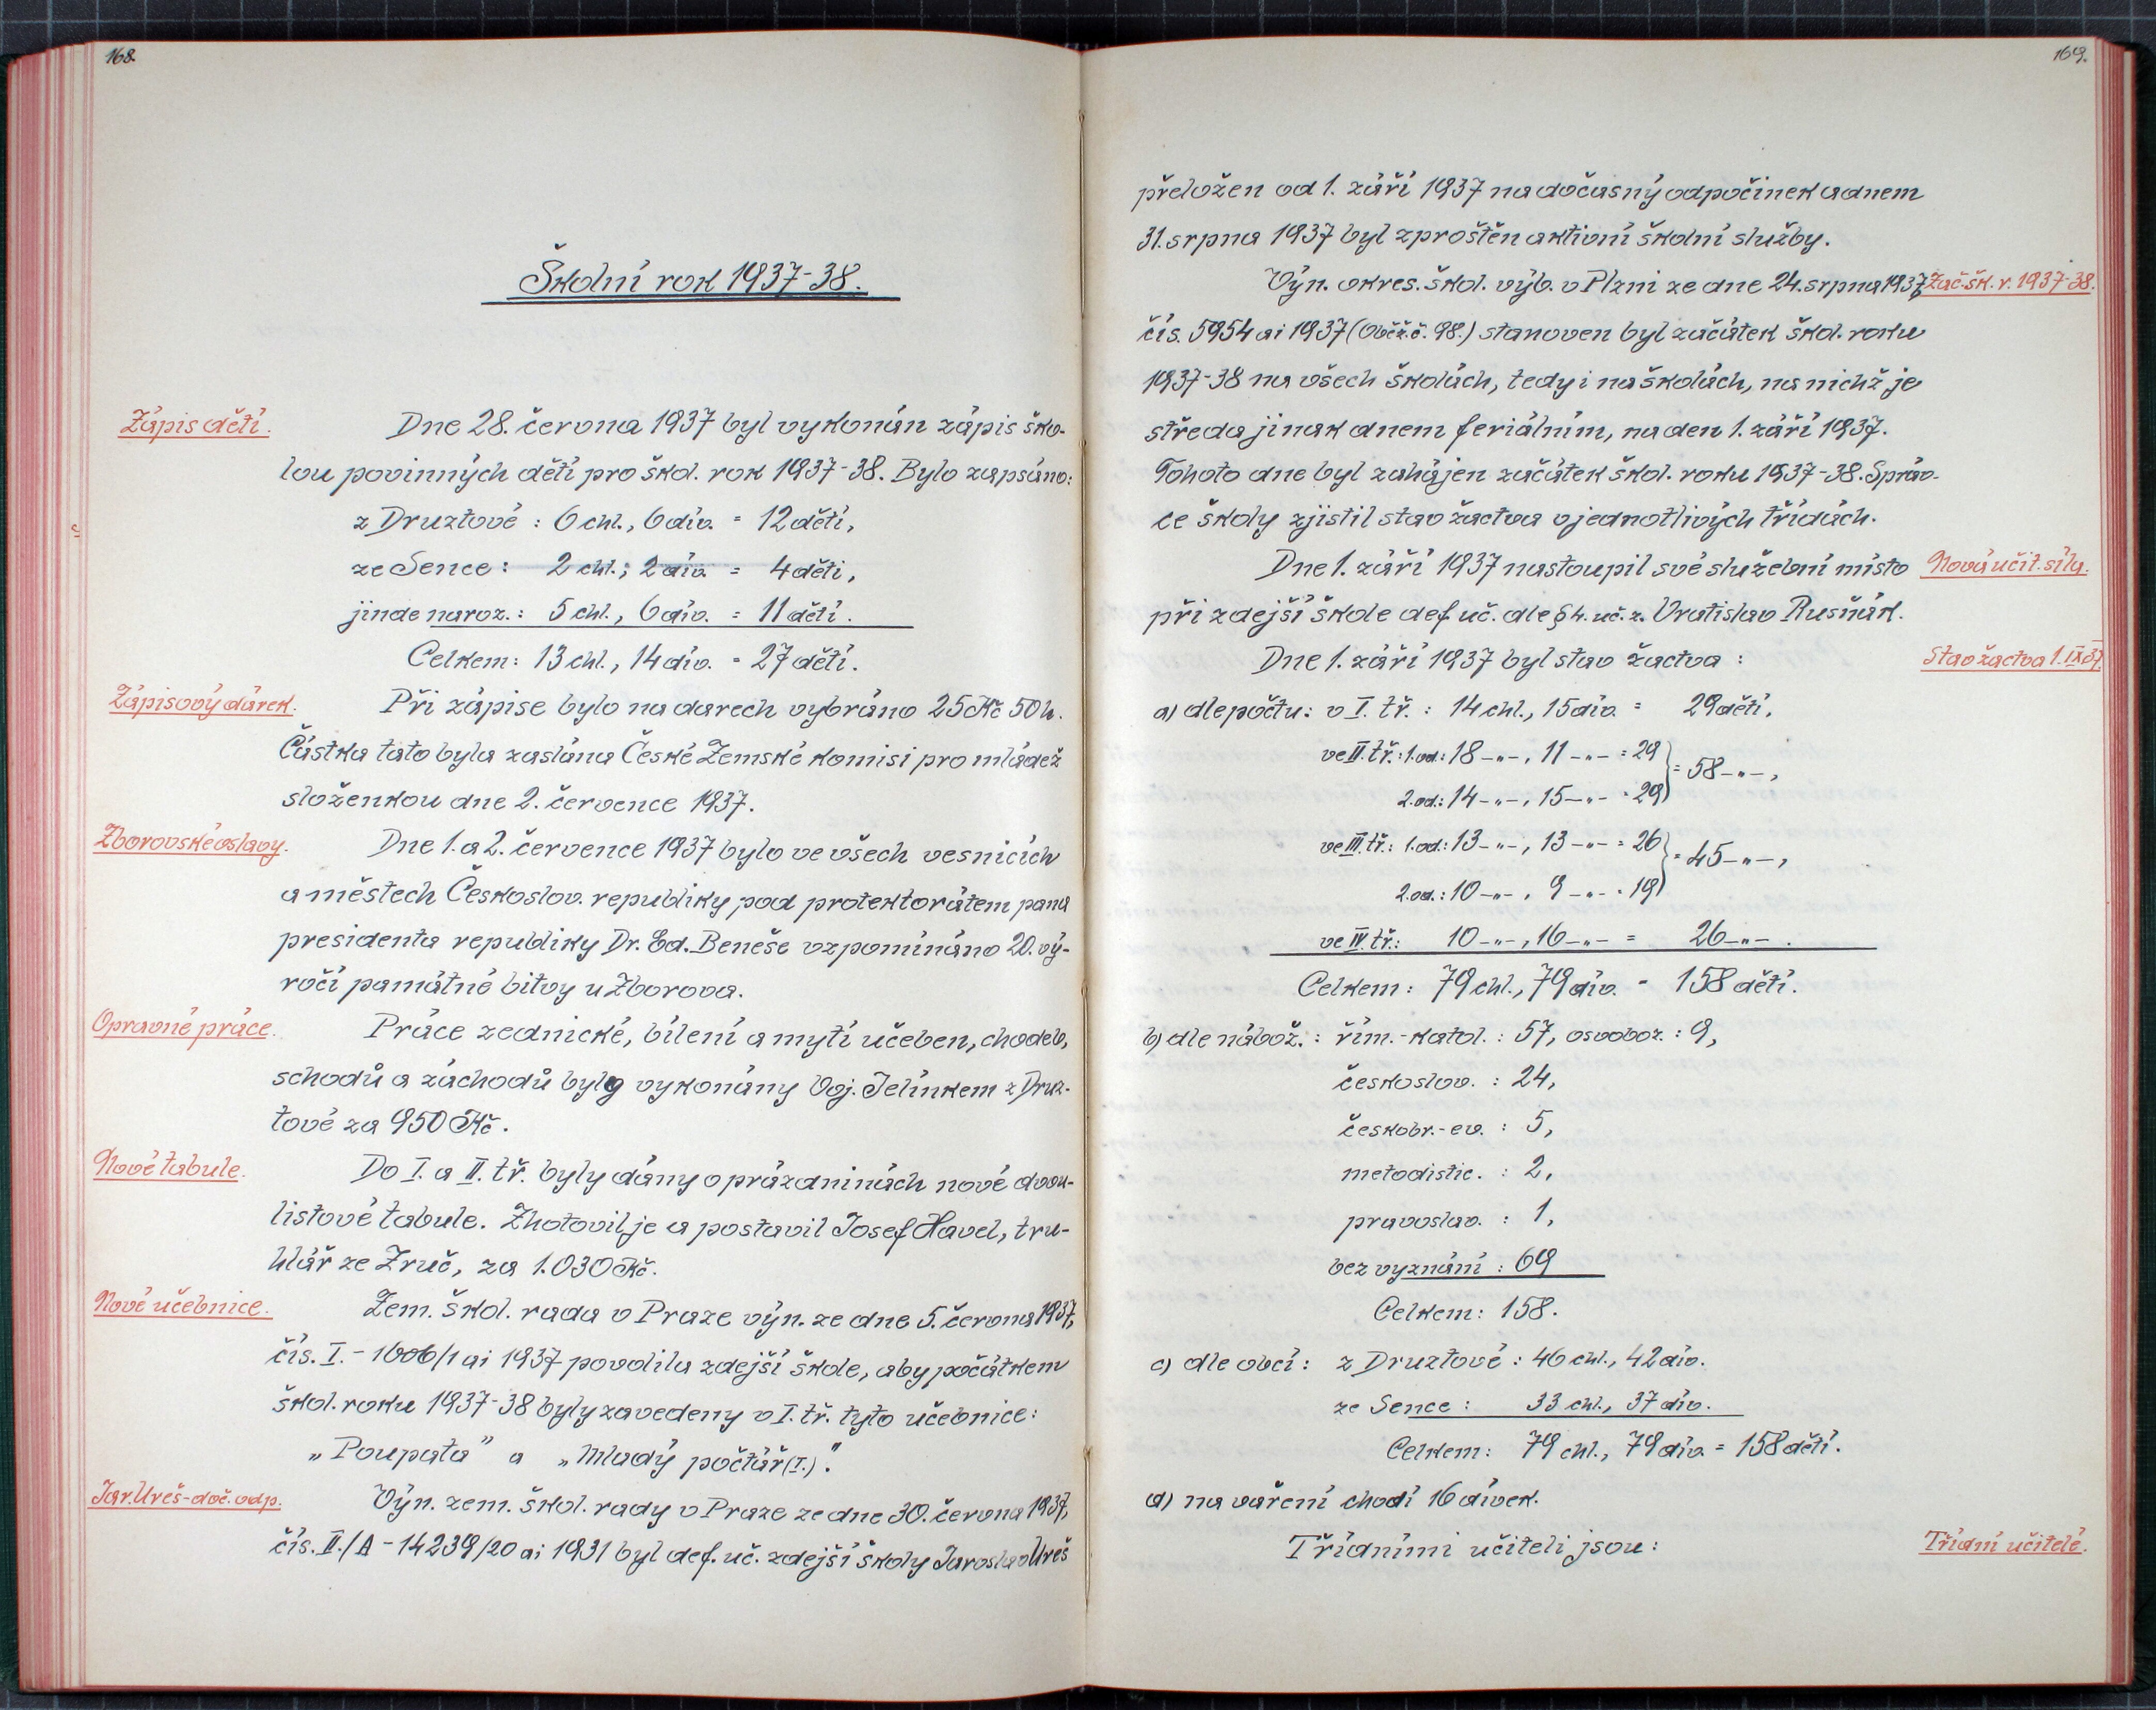 168.
Školní rok 1937-38.
Zápis dětí.
Dne 28. června 1937 byl vykonán zápis ško-
lou povinných dětí pro škol. rok 1937-38. Bylo zapsáno:
z Druztové: 6 chl., 6 dív. = 12 dětí,
ze Sence: 2 chl.; 2 dív. = 4 děti,
jinde naroz.: 5 chl., 6 dív. = 11 dětí.
Celkem: 13 chl., 14 dív. = 27 dětí.
Zápisový dárek.
Při zápise bylo na darech vybráno 25 Kč 50 h.
Částka tato byla zaslána České Zemské komisi pro mládež
složenkou dne 2. července 1937.
Zborovské oslavy.
Dne 1. a 2. července 1937 bylo ve všech vesnicích
a městech Českoslov. republiky pod protektorátem pana
presidenta republiky Dr. Ed. Beneše vzpomínáno 20. vý-
ročí památné bitvy u Zborova.
Opravné práce.
Práce zednické, bílení a mytí učeben, chodeb,
schodů a záchodů byly vykonány Voj. Jelínkem z Druz-
tové za 950 Kč.
Nové tabule.
Do I. a II. tř. byly dány o prázdninách nové dvou-
listové tabule. Zhotovil je a postavil Josef Havel, tru-
hlář ze Zruč, za 1.030 Kč.
Nové učebnice.
Zem. škol. rada v Praze výn. ze dne 5. června 1937,
čís. I.-1606/1 ai 1937 povolila zdejší škole, aby počátkem
škol. roku 1937-38 byly zavedeny v I. tř. tyto učebnice:
„Poupata" a „Mladý počtář (I.)."
Jar. Ureš-doč. odp.
Výn. zem. škol. rady v Praze ze dne 30. června 1937,
čís. II./A-14239/20 ai 1931 byl def. uč. zdejší školy Jaroslav Ureš
169.
přeložen od 1. září 1937 na dočasný odpočinek a dnem
31. srpna 1937 byl zproštěn aktivní školní služby.
Výn. okres. škol. výb. v Plzni ze dne 24. srpna 1937,
Zač. šk. r. 1937-38.
čís. 5954 ai 1937 (Oběž. č. 98.) stanoven byl začátek škol. roku
1937-38 na všech školách, tedy i na školách, na nichž je
středa jinak dnem feriálním, na den 1. září 1937.
Tohoto dne byl zahájen začátek škol. roku 1937-38. Správ-
ce školy zjistil stav žactva v jednotlivých třídách.
Dne 1. září 1937 nastoupil své služební místo
Nová učit. síla.
při zdejší škole def. uč. dle § 4. uč. z. Vratislav Rusňák.
Dne 1. září 1937 byl stav žactva:
Stav žactva 1. IX. 37.
a) dle počtu: v I. tř.: 14 chl., 15 dív. = 29 dětí,
ve II. tř.: 1. od.: 18 -„-, 11 -„- = 29
= 58 -„-,
2. od.: 14 -„-, 15 -„- = 29
ve III. tř.: 1. od.: 13 -„-, 13 -„- = 26
= 45 -„-,
2. od.: 10 -„-, 9 -„- = 19
ve IV. tř.: 10 -„-, 16 -„- = 26 -„-.
Celkem: 79 chl., 79 dív. = 158 dětí.
b) dle nábož.: řím.-katol.: 57, osvoboz.: 9,
českoslov.: 24,
českobr.-ev.: 5,
metodistic.: 2,
pravoslav.: 1,
bez vyznání: 69
Celkem: 158.
c) dle obcí: z Druztové: 46 chl., 42 dív.
ze Sence: 33 chl., 37 dív.
Celkem: 79 chl., 79 dív. = 158 dětí.
d) na vaření chodí 16 dívek.
Třídními učiteli jsou:
Třídní učitelé.